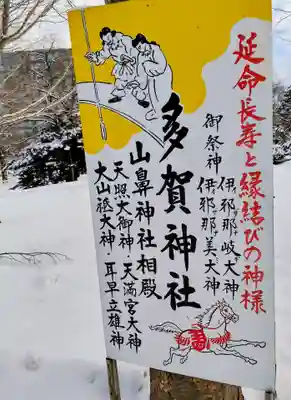 延命長寿と縁結びの神様
御祭神
伊邪那岐大神
伊邪那美大神
多賀神社
山鼻神社相殿
天照大御神・天満宮大神
大山祗大神・耳早立雄神